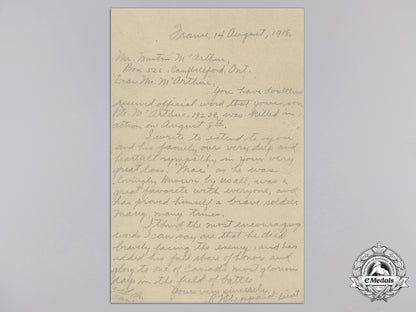 France, 14 August, 1918.
Mr. McArthur,
Box 522, Campbellford, Ont.
Dear Mr. McArthur,
You have doubtless
received official word that your son
Pte. McArthur, was killed in
action on August 8th.
I write to extend to you
and his family our very deep and
heartfelt sympathy in your very
great loss. "Mac" as he was
lovingly known by us all, was a
great favorite with everyone, and
has proved himself a brave soldier
many, many times.
I think the most encouraging
words I can say are that he died
bravely facing the enemy, and has
added his full share of honor and
glory to one of Canada's most glorious
days in the field of battle.
Yours very sincerely,
Sheppard Lieut
eMedals